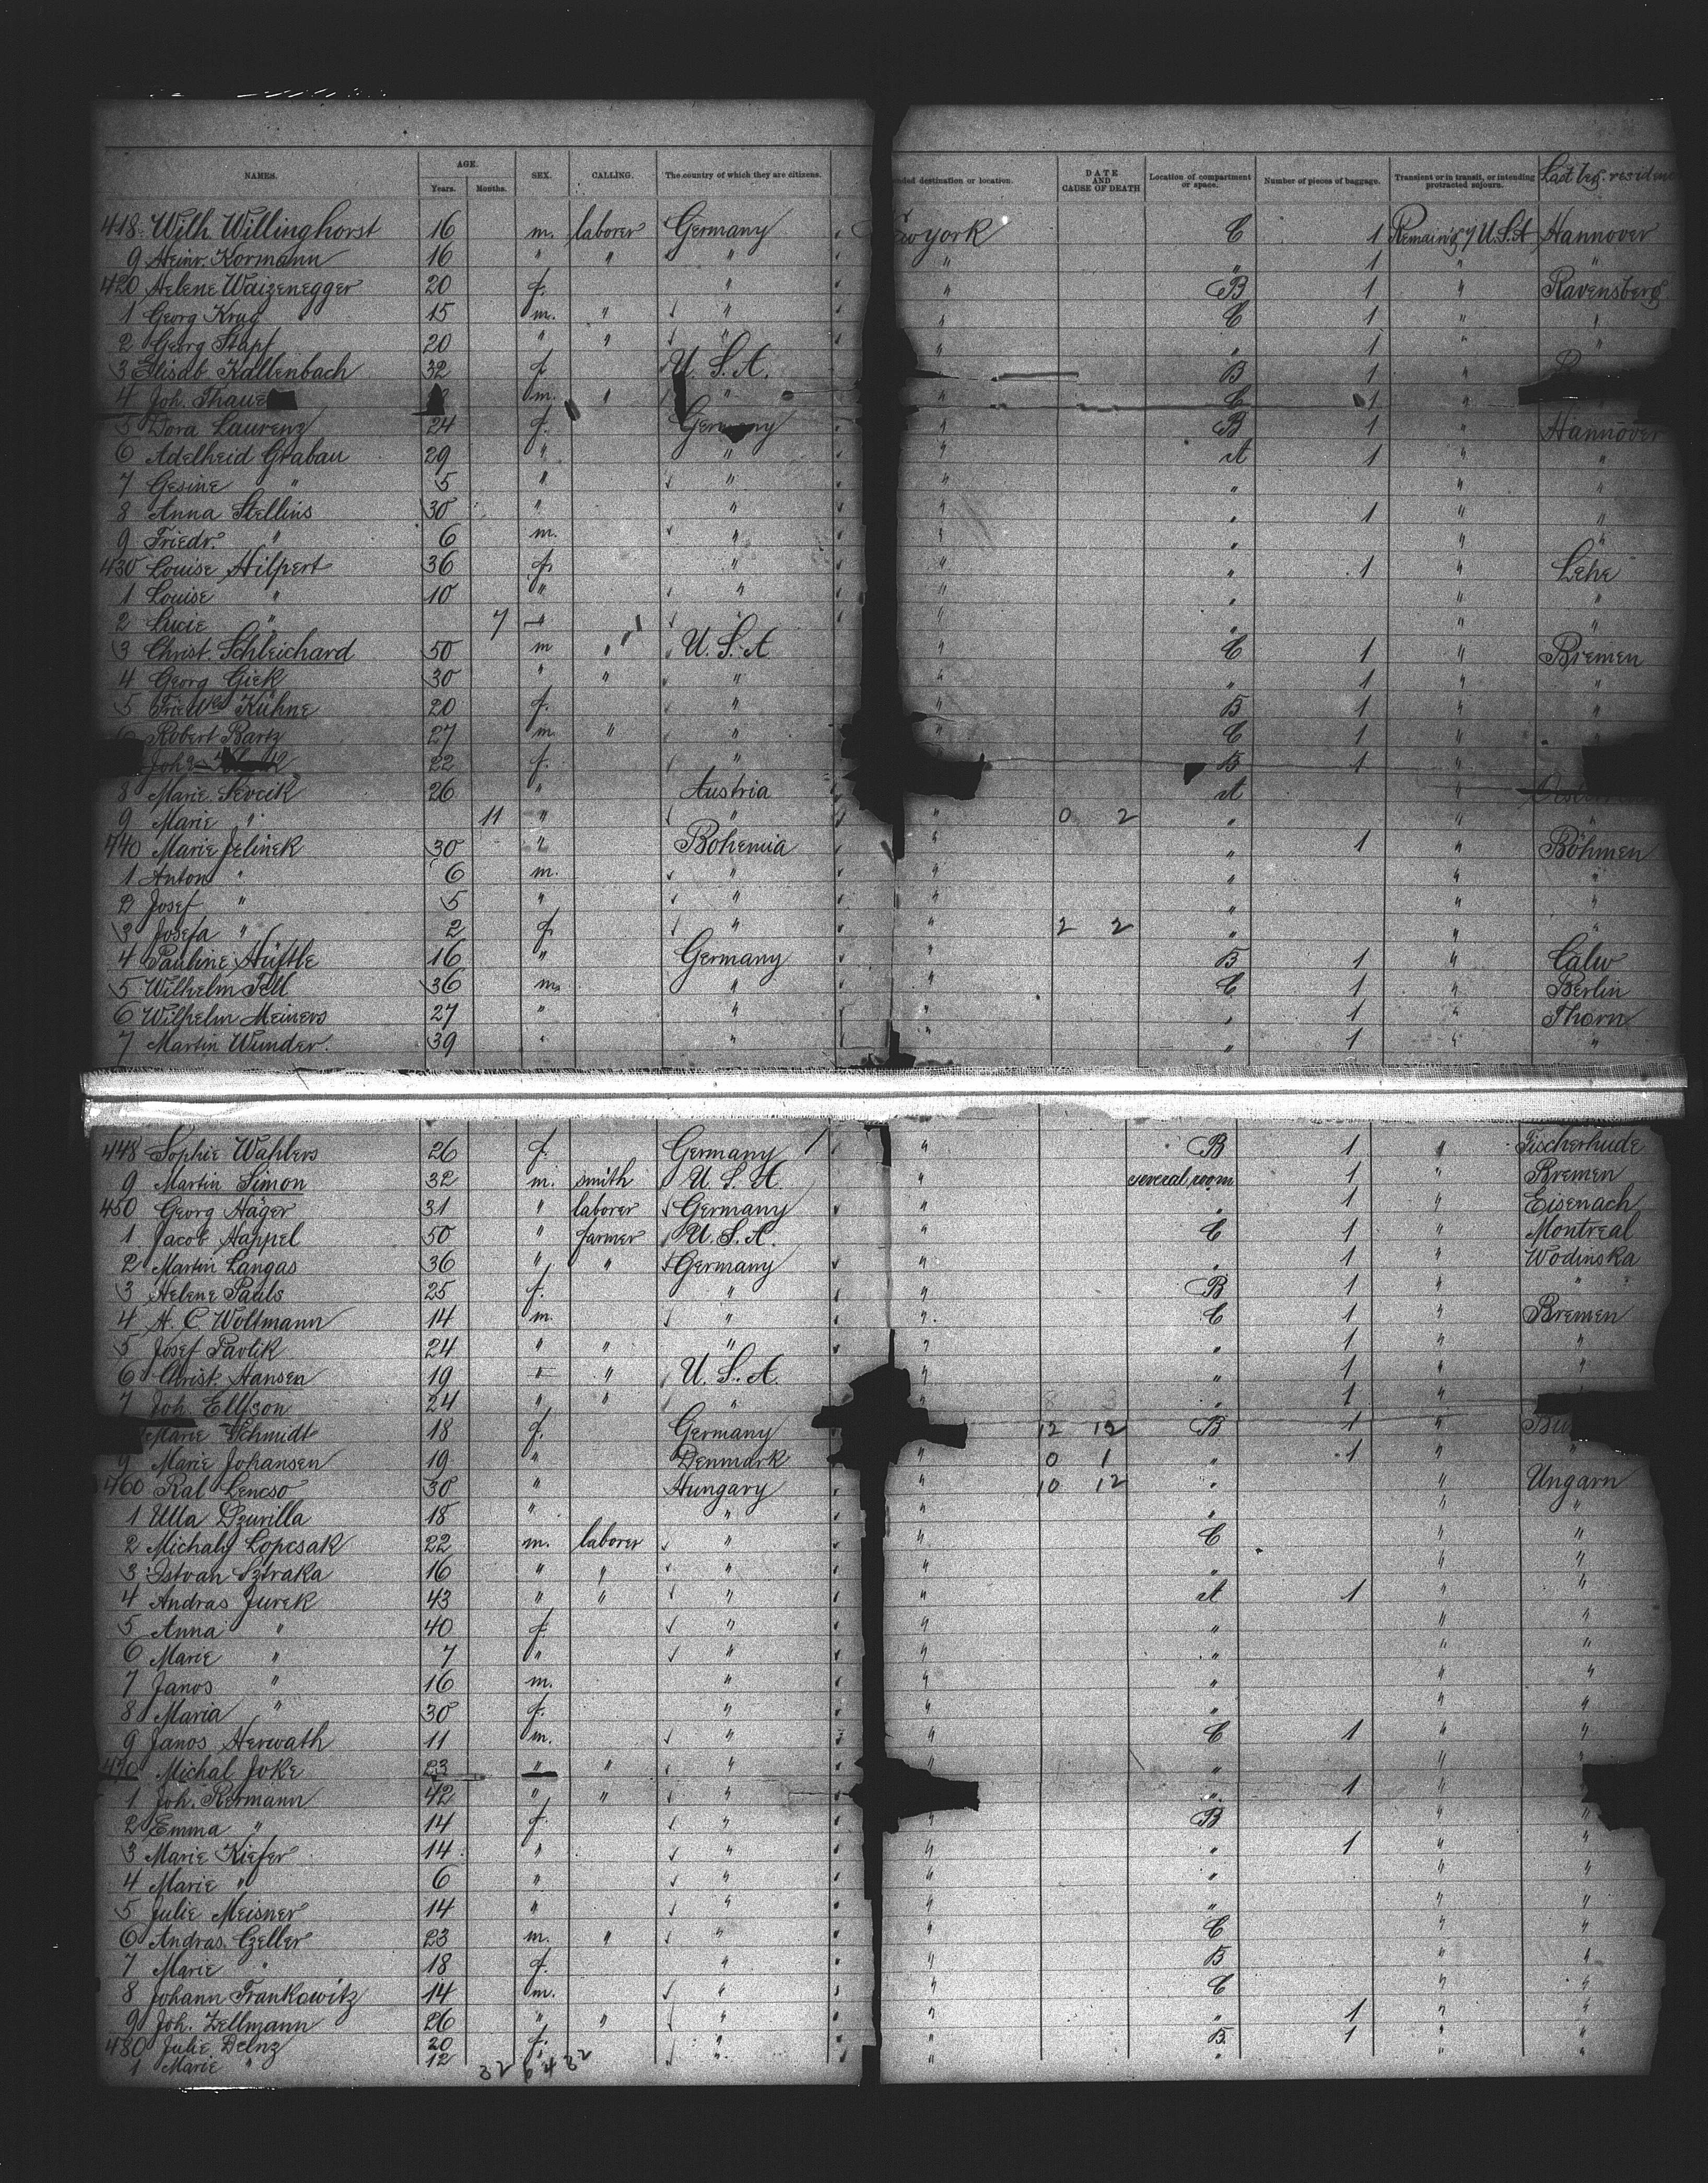 NAMES. AGE. Years. Months. SEX. CALLING. The country of which they are citizens. nded destination or location. DATE AND CAUSE OF DEATH Location of compartment or space. Number of pieces of baggage. Transient or in transit, or intending protracted sojourn. Last leg. residenc
418. Wilh. Willinghorst 16 m. laborer Germany ew york C 1 Remain'g U.S.A Hannover
9 Heinr. Kormann 16 " " " " " 1 " "
420 Helene Waizenegger 20 f. " " B 1 " Ravensberg
1 Georg Krug 15 m. " " " C 1 " "
2 Georg Stapf 20 " " " " " 1 " "
3 Elisab. Kallenbach 32 f. U.S.A. " B 1 "
4 Joh. Thaue m. " " " C 1 "
5 Dora Laurenz 24 f. Germany " B 1 " Hannover
6 Adelheid Grabau 29 " " " A 1 " "
7 Gesine " 5 " " " " " "
8 Anna Stellins 30 " " " " 1 " "
9 Friedr. " 6 m. " " " " "
430 Louise Hilpert 36 f. " " " 1 " Lehe
1 Louise " 10 " " " " " "
2 Lucie " 7 " " " " " "
3 Christ. Schleichard 50 m " U.S.A " C 1 " Bremen
4 Georg Giek 30 " " " " " 1 " "
5 Kühne 20 f. " " B 1 " "
6 Robert Bartz 27 m. " " " C 1 " "
Joh 22 f. " B 1 "
8 Marie Sevcik 26 " Austria A "
9 Marie " 11 " " " 0 2 " " "
440 Marie Jelinek 30 " Bohemia " " 1 " Böhmen
1 Anton " 6 m. " " " " "
2 Josef " 5 " " " " " "
3 Josefa " 2 f " " 2 2 " " "
4 Pauline Hüftle 16 " Germany " B 1 " Calw
5 Wilhelm Tell 36 m. " " C 1 " Berlin
6 Wilhelm Meiners 27 " " " " 1 " Thorn
7 Martin Wunder. 39 " " " " 1 " "
448 Sophie Wahlers 26 f. Germany " B 1 " Fischerhude
9 Martin Simon 32 m. smith U.S.A. " several room 1 " Bremen
450 Georg Häger 31 " laborer Germany " " 1 " Eisenach
1 Jacob Happel 50 " farmer U.S.A. " C 1 " Montreal
2 Martin Langas 36 " " Germany " " 1 " Wodinska
3 Helene Pauls 25 f. " " B 1 " "
4 H. C Woltmann 14 m. " " C 1 " Bremen
5 Josef Pavlik 24 " " " " " 1 " "
6 Christ. Hansen 19 " " U.S.A. " " 1 " "
7 Joh. Ellfson 24 " " " " " 1 "
Marie Schmidt 18 f. Germany 12 12 B 1 "
9 Marie Johansen 19 " Denmark " 0 1 " 1 " "
460 Ral Lencso 30 " Hungary " 10 12 " " Ungarn
1 Ulla Dzurilla 18 " " " " " "
2 Michaly Lopcsak 22 m. laborer " " C " "
3 Istvan Sztraka 16 " " " " " " "
4 Andras Jurek 43 " " " " A 1 " "
5 Anna " 40 f. " " " " "
6 Marie " 7 " " " " " "
7 Janos " 16 m. " " " " "
8 Maria " 30 f. " " " " "
9 Janos Herwath 11 m. " " C 1 " "
470 Michal Joke 23 " " " " " " "
1 Joh. Rermann 42 " " " " 1 " "
2 Emma " 14 f. " " B " "
3 Marie Kiefer 14 " " " " 1 " "
4 Marie " 6 " " " " " "
5 Julie Meisner 14 " " " " " "
6 Andras. Czeller 23 m. " " " C " "
7 Marie " 18 f. " " B " "
8 Johann Frankowitz 14 m. " " C " "
9 Joh. Zellmann 26 " " " " " 1 " "
480 Julie Delnz 20 f. " " B. 1 " "
1 Marie " 12 32 6 4 32 " " " " "